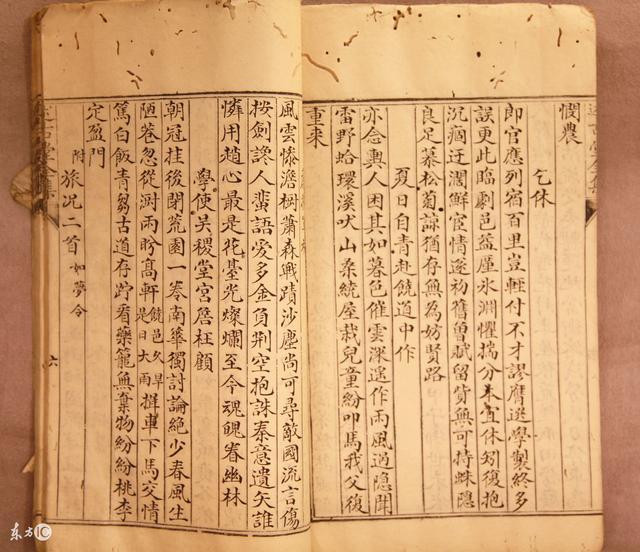 憫農
乞休
即官應列宿百里豈輕付不才謬膺選學製終多
誤更此臨劇邑益厪氷淵懼揣分本宜休矧復抱
沉痼迂濶鮮宦情遂初舊曾賦留貲無可持蛛隱
良足慕松菊諒猶存無為妨賢路
夏日自青赴饒道中作
亦念輿人困其如暮色催雲深遥作雨風過隱聞
雷野蛤環溪吠山桑繞屋栽兒童紛叩馬我父復
重来
風雲慘澹樹蕭森戰蹟沙塵尚可尋敵國流言傷
按劍讒人蜚語愛多金負荆空抱誅秦意遺矢誰
憐用趙心最是花臺光燦爛至今魂魄眷幽林
學使吳稷堂宮詹枉顧
朝冠挂後閉荒園一卷南華獨討論絶少春風生
陋巷忽從澍雨盻高軒 饒邑久旱是日大雨 攆車下馬交情
篤白飯青芻古道存跨看藥籠無棄物紛紛桃李
定盈門
附 旅况二首 如夢令
六
东方IC